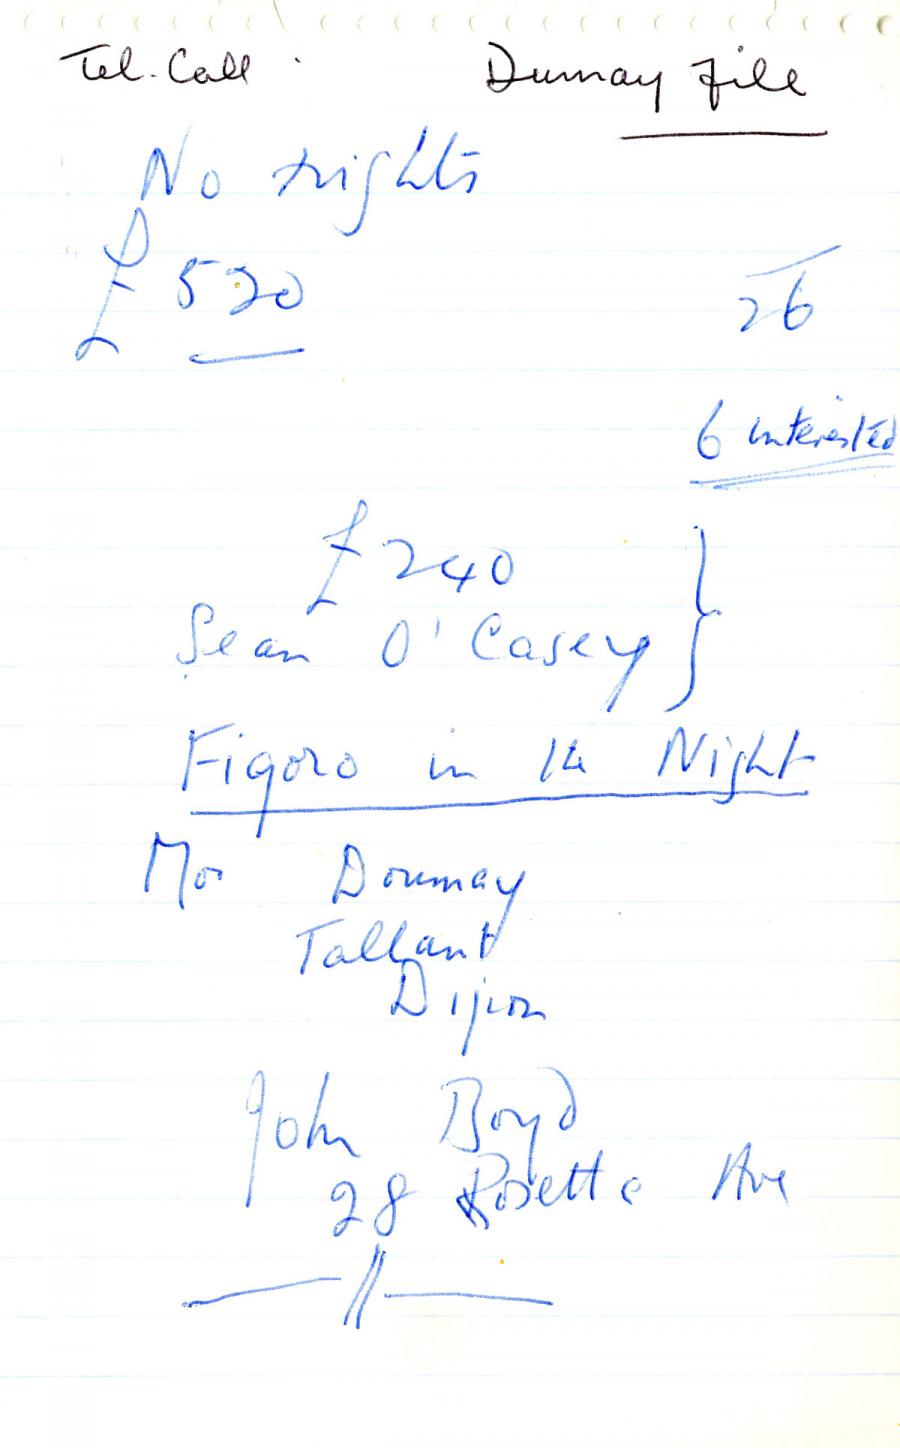 Tel. Call Dumay file
No rights
£ 520
26
6 interested
£240
Sean O'Casey }
Figoro in the Night
Doumay
Tallant
Dijon
John Boyd
28 Rosetta Ave